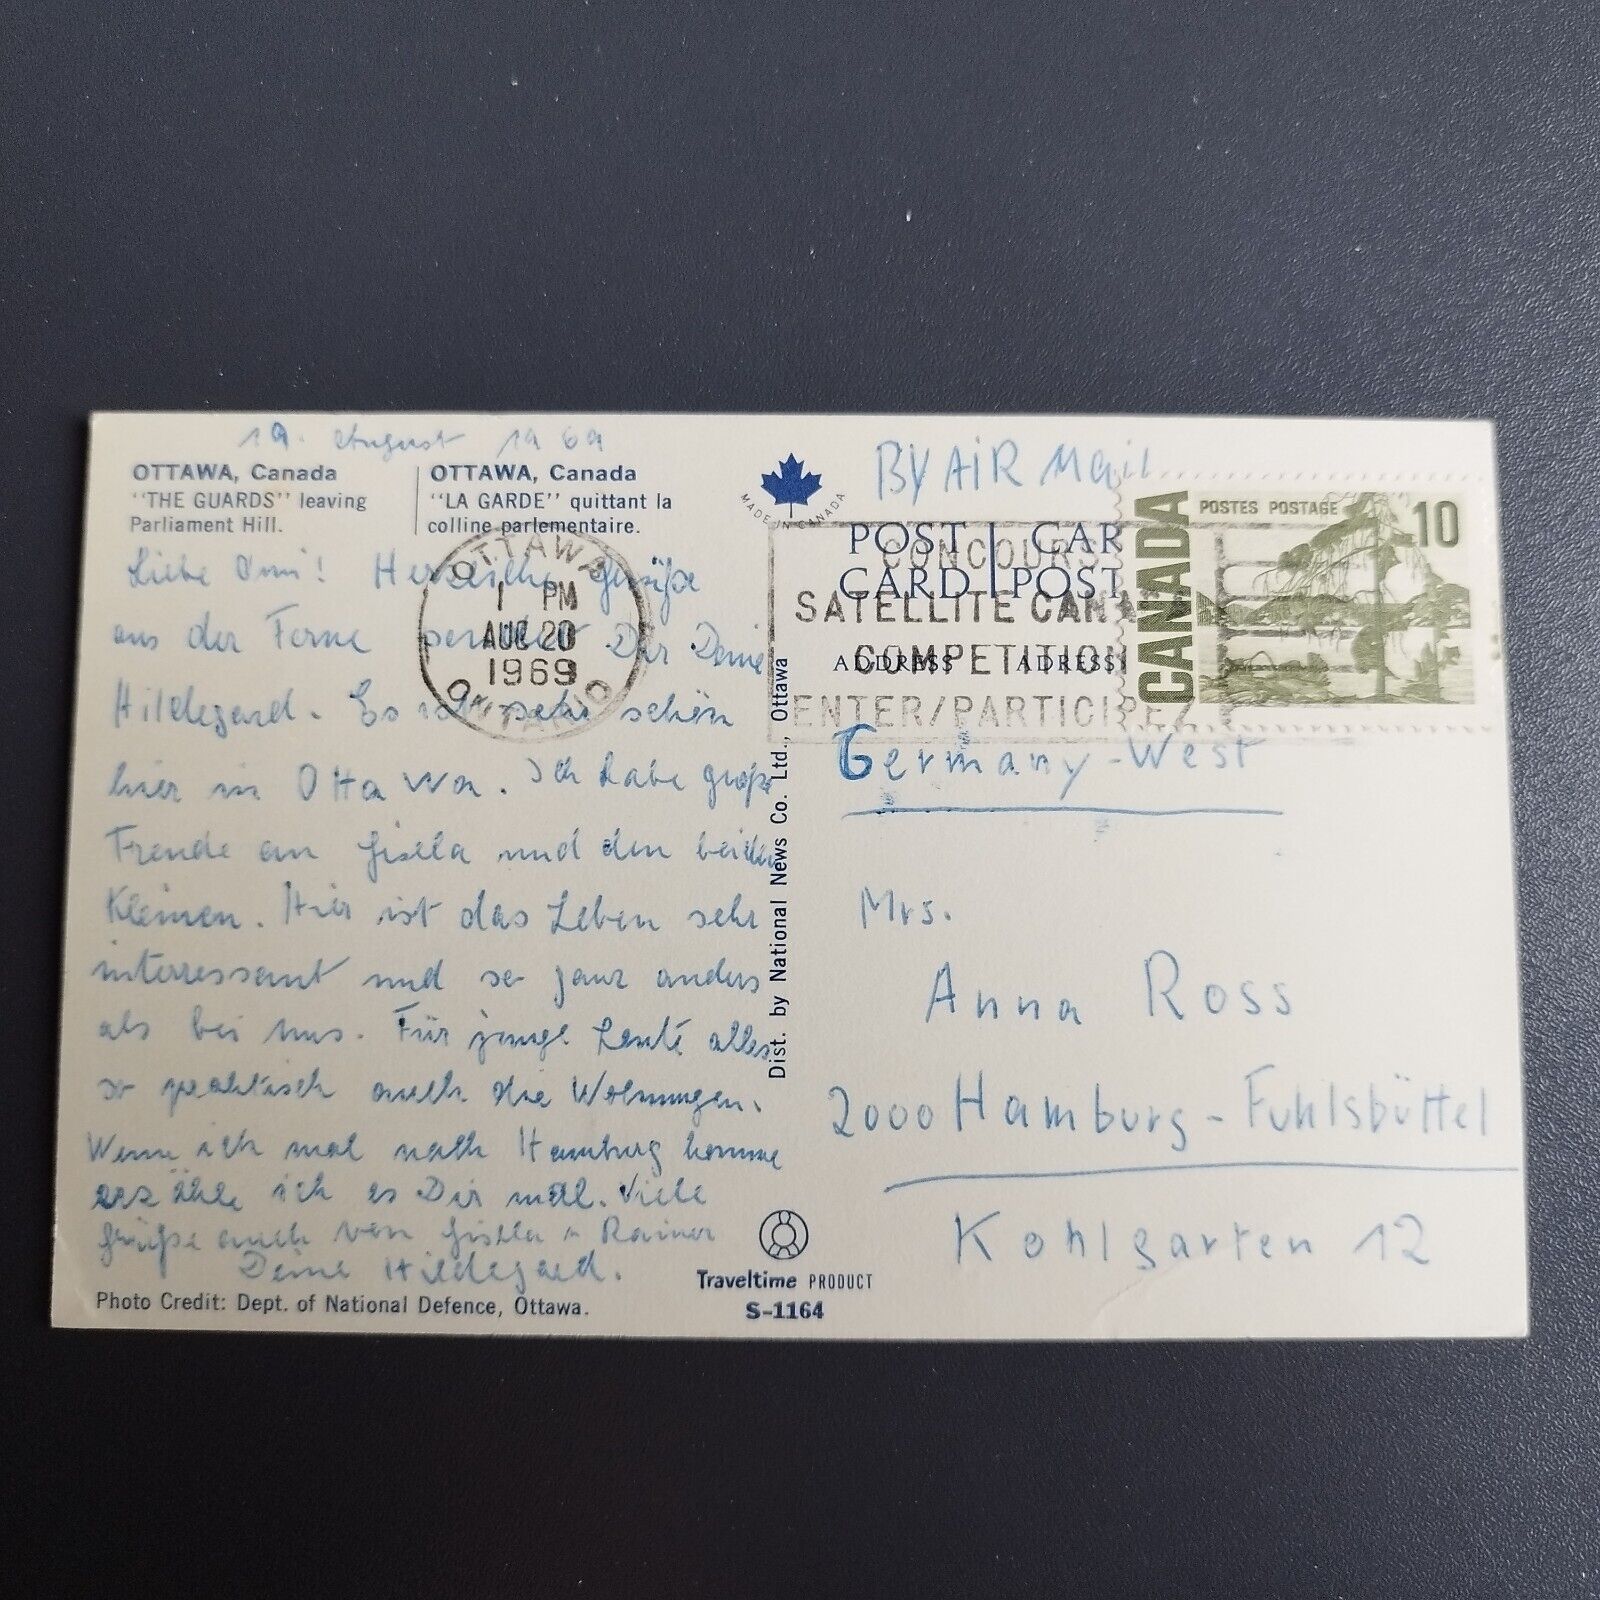 19. August 1969
OTTAWA, Canada
"THE GUARDS" leaving
Parliament Hill.
OTTAWA, Canada
"LA GARDE" quittant la
colline parlementaire.
Liebe Omi! Herzliche Grüße
aus der Ferne sendet Dir Deine
Hildegard. Es ist sehr schön
hier in Ottawa. Ich habe große
Freude an Gisela und den beiden
Kleinen. Hier ist das Leben sehr
interressant und so ganz anders
als bei uns. Für junge Leute alles
so praktisch auch die Wohnungen.
Wenn ich mal nach Hamburg komme
erzähle ich es Dir mal. Viele
Grüße auch von Gisela u Rainer
Deine Hildegard.
Photo Credit: Dept. of National Defence, Ottawa.
OTTAWA
1 PM
AUG 20
1969
ONTARIO
MADE IN CANADA
Dist. by National News Co. Ltd., Ottawa
Traveltime PRODUCT
S-1164
BY AIR Mail
POST CARD
CAR
POST
ADDRESS
ADRESS
CONCOURS
SATELLITE CANA
COMPETITION
ENTER/PARTICIPEZ
CANADA
POSTES POSTAGE
10
Germany-West
Mrs.
Anna Ross
2000 Hamburg-Fuhlsbüttel
Kohlgarten 12